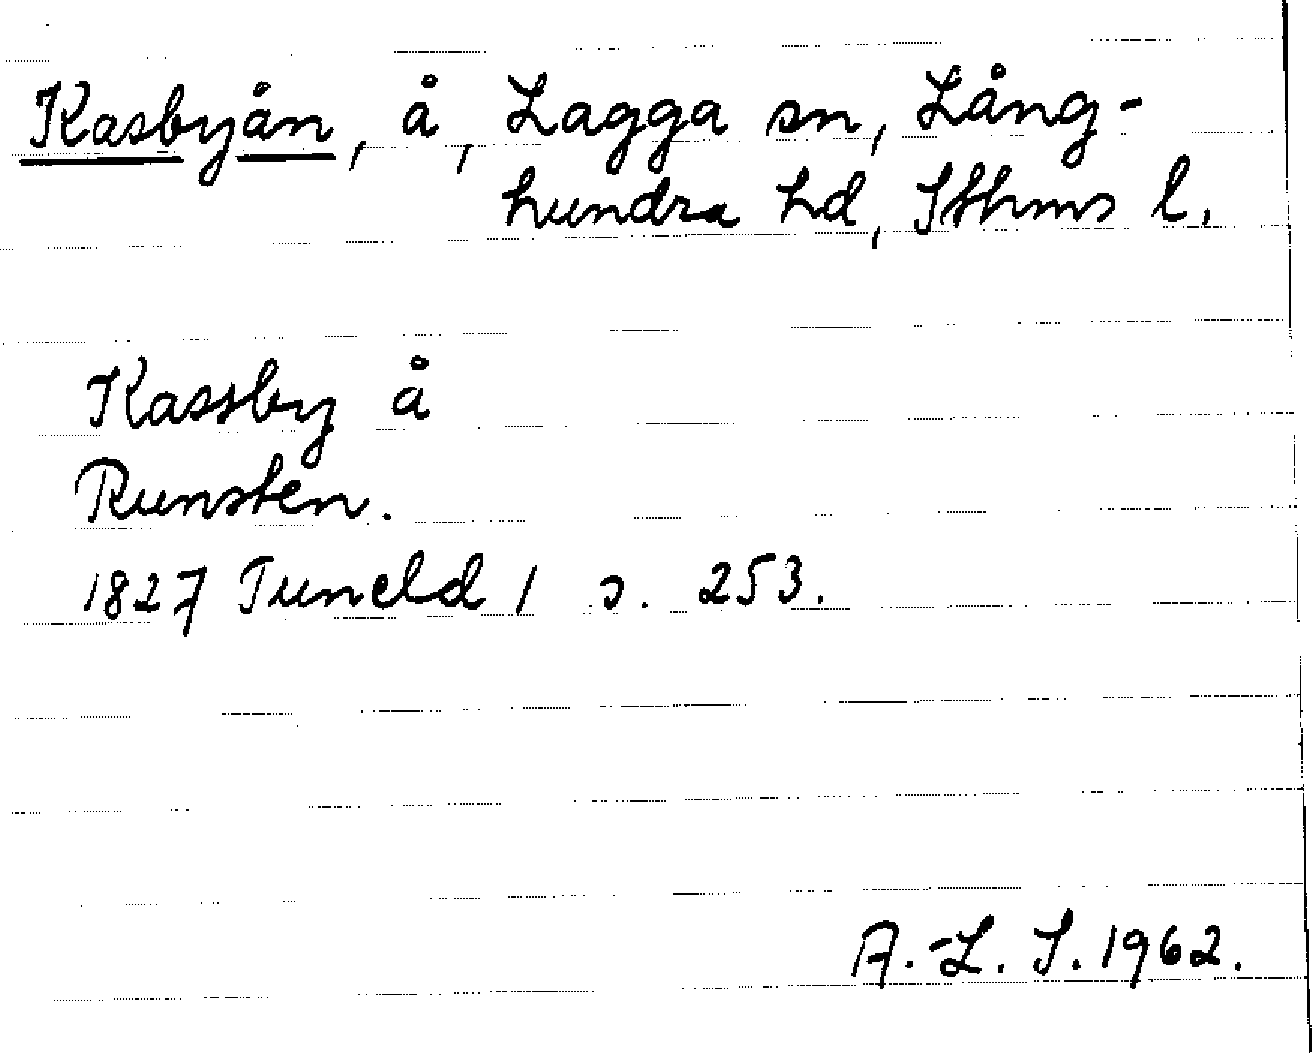 Kasbyån, å, Lagga sn, Lång-
hundra hd, Sthms l.
Kassby å
Runsten.
1827 Tuneld 1 s. 253.
A.-L. S. 1962.